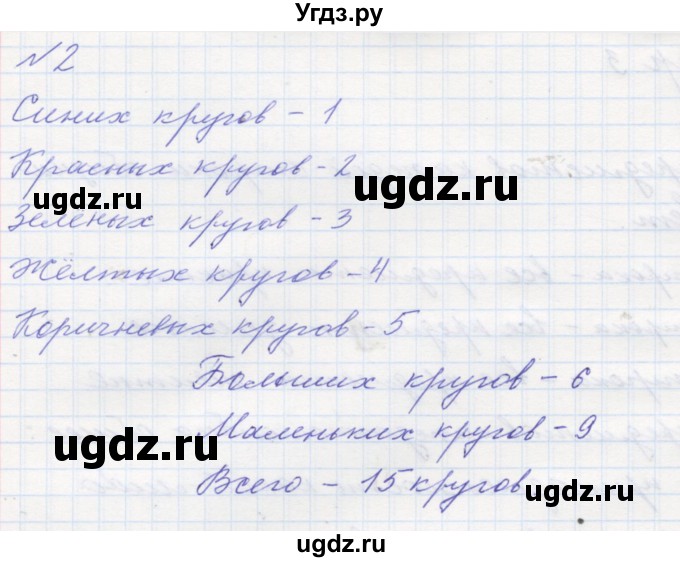 Угдз.ру
№2
Синих кругов - 1
Красных кругов - 2
ugdz.ru
ugdz.ru
Зелёных кругов - 3
Жёлтых кругов - 4
Коричневых кругов - 5
Больших кругов - 6
ugdz.ru
Маленьких кругов - 9
Всего - 15 кругов
ugdz.ru
ugdz.ru